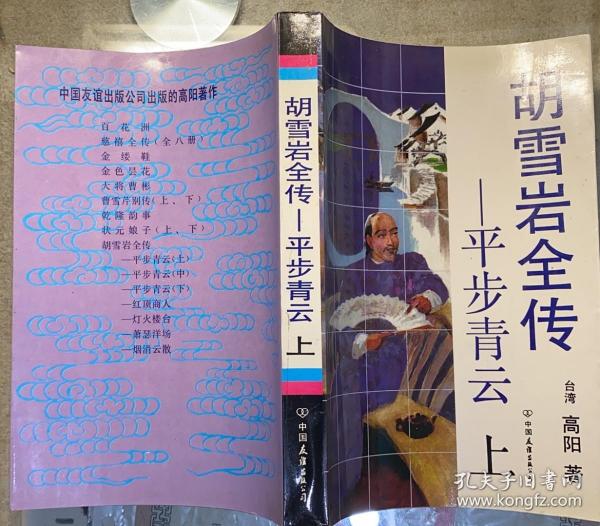 中国友谊出版公司出版的高阳著作
百花洲
慈禧全传(全八册)
金缕鞋
金色昙花
大将曹彬
曹雪芹别传(上、下)
乾隆韵事
状元娘子(上、下)
胡雪岩全传
—平步青云(上)
—平步青云(中)
—平步青云(下)
—红顶商人
—灯火楼台
—萧瑟洋场
—烟消云散
胡雪岩全传—平步青云 上
中国友谊出版公司
胡雪岩全传
—平步青云 上
台湾 高阳 著
中国友谊出版公司
孔夫子旧书网
www.kongfz.com